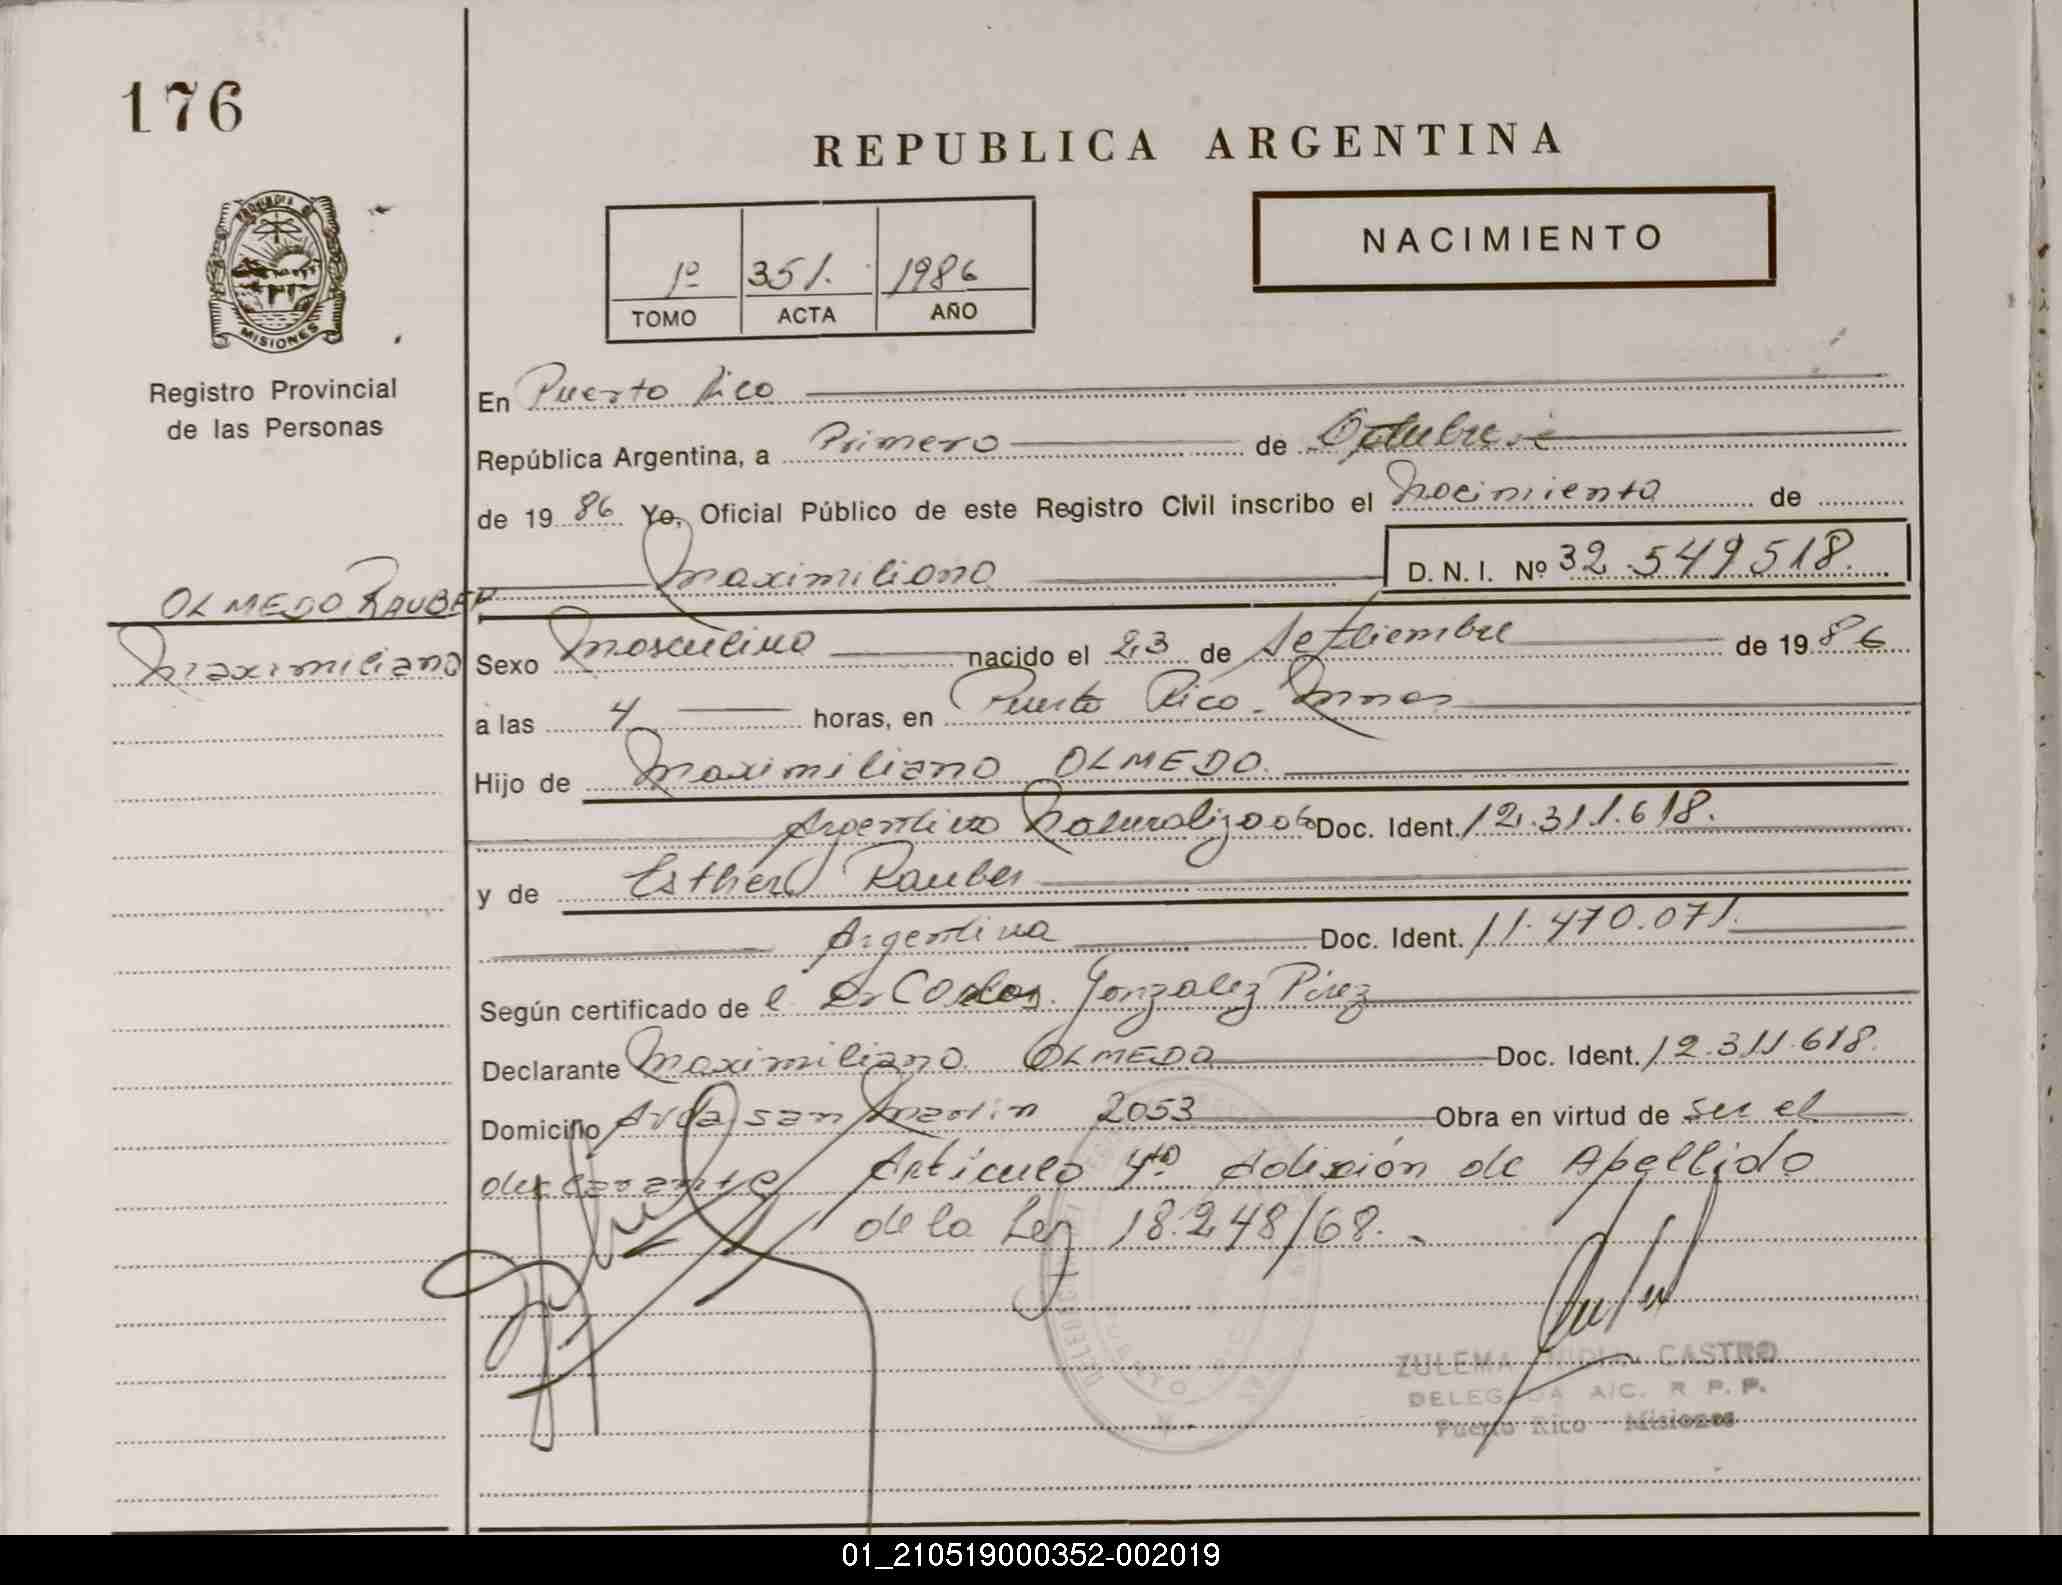 176
REPUBLICA ARGENTINA
PROVINCIA DE
MISIONES
Registro Provincial
de las Personas
1º 351. 1986
TOMO ACTA AÑO
NACIMIENTO
En Puerto Rico
República Argentina, a Primero de Octubre
de 1986 Yo, Oficial Público de este Registro Civil inscribo el Nacimiento de
Maximiliano D. N. I. Nº 32.549518.
OLMEDO RAUBER
Maximiliano
Sexo Masculino nacido el 23 de Setiembre de 1986
a las 4 horas, en Puerto Rico - Mnes
Hijo de Maximiliano OLMEDO.
Argentino Naturalizado Doc. Ident. 12.311.618.
y de Esther Rauber
Argentina Doc. Ident. 11.470.071.
Según certificado de el Dr Carlos Gonzalez Pérez
Declarante Maximiliano OLMEDO Doc. Ident. 12.311.618.
Domicilio Avda san Martin 2053 Obra en virtud de ser el
declarante Articulo 4to Adición de Apellido
de la Ley 18.248/68.-
ZULEMA CASTRO
DELEGADA A/C. R. P. P.
Puerto Rico - Misiones
01_210519000352-002019